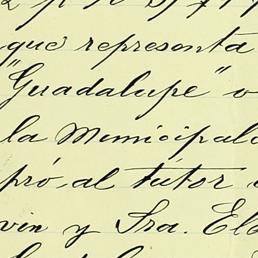 que representa
"Guadalupe" o
la Municipal
pró, al tutor
vin y Sra. El